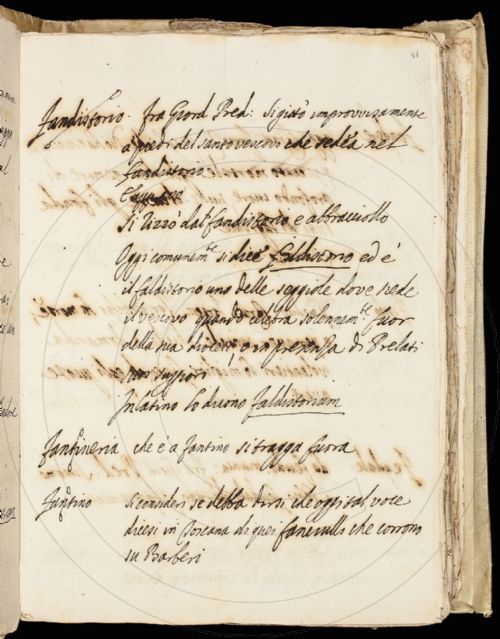 Fandistorio. fra Giord Pred: Si gittò improvvisamente
a piedi del santo vescovo che sedea nel
fandistorio
Si rizzò dal fandistorio e abbracciollo
Oggi comunem.te si dice faldistorio ed è
il faldistorio una delle seggiole dove siede
il vescovo quando celebra solennem.te fuor
della sua diocesi, o in presenza di Prelati
suoi
In latino lo dicono faldistorium
Fantineria che è a fantino si tragga fuora
Fantino si consideri se debba dirsi che oggi tal voce
dicesi in Toscana di quei fanciulli che corrono
su Barberi